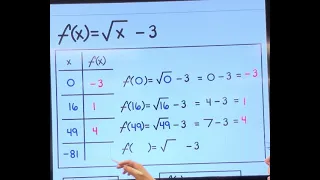 f(x)=√x - 3
x f(x)
0 -3 f(0)=√0 - 3 = 0 - 3 = -3
16 1 f(16)=√16 - 3 = 4 - 3 = 1
49 4 f(49)=√49 - 3 = 7 - 3 = 4
-81 f( )=√ - 3